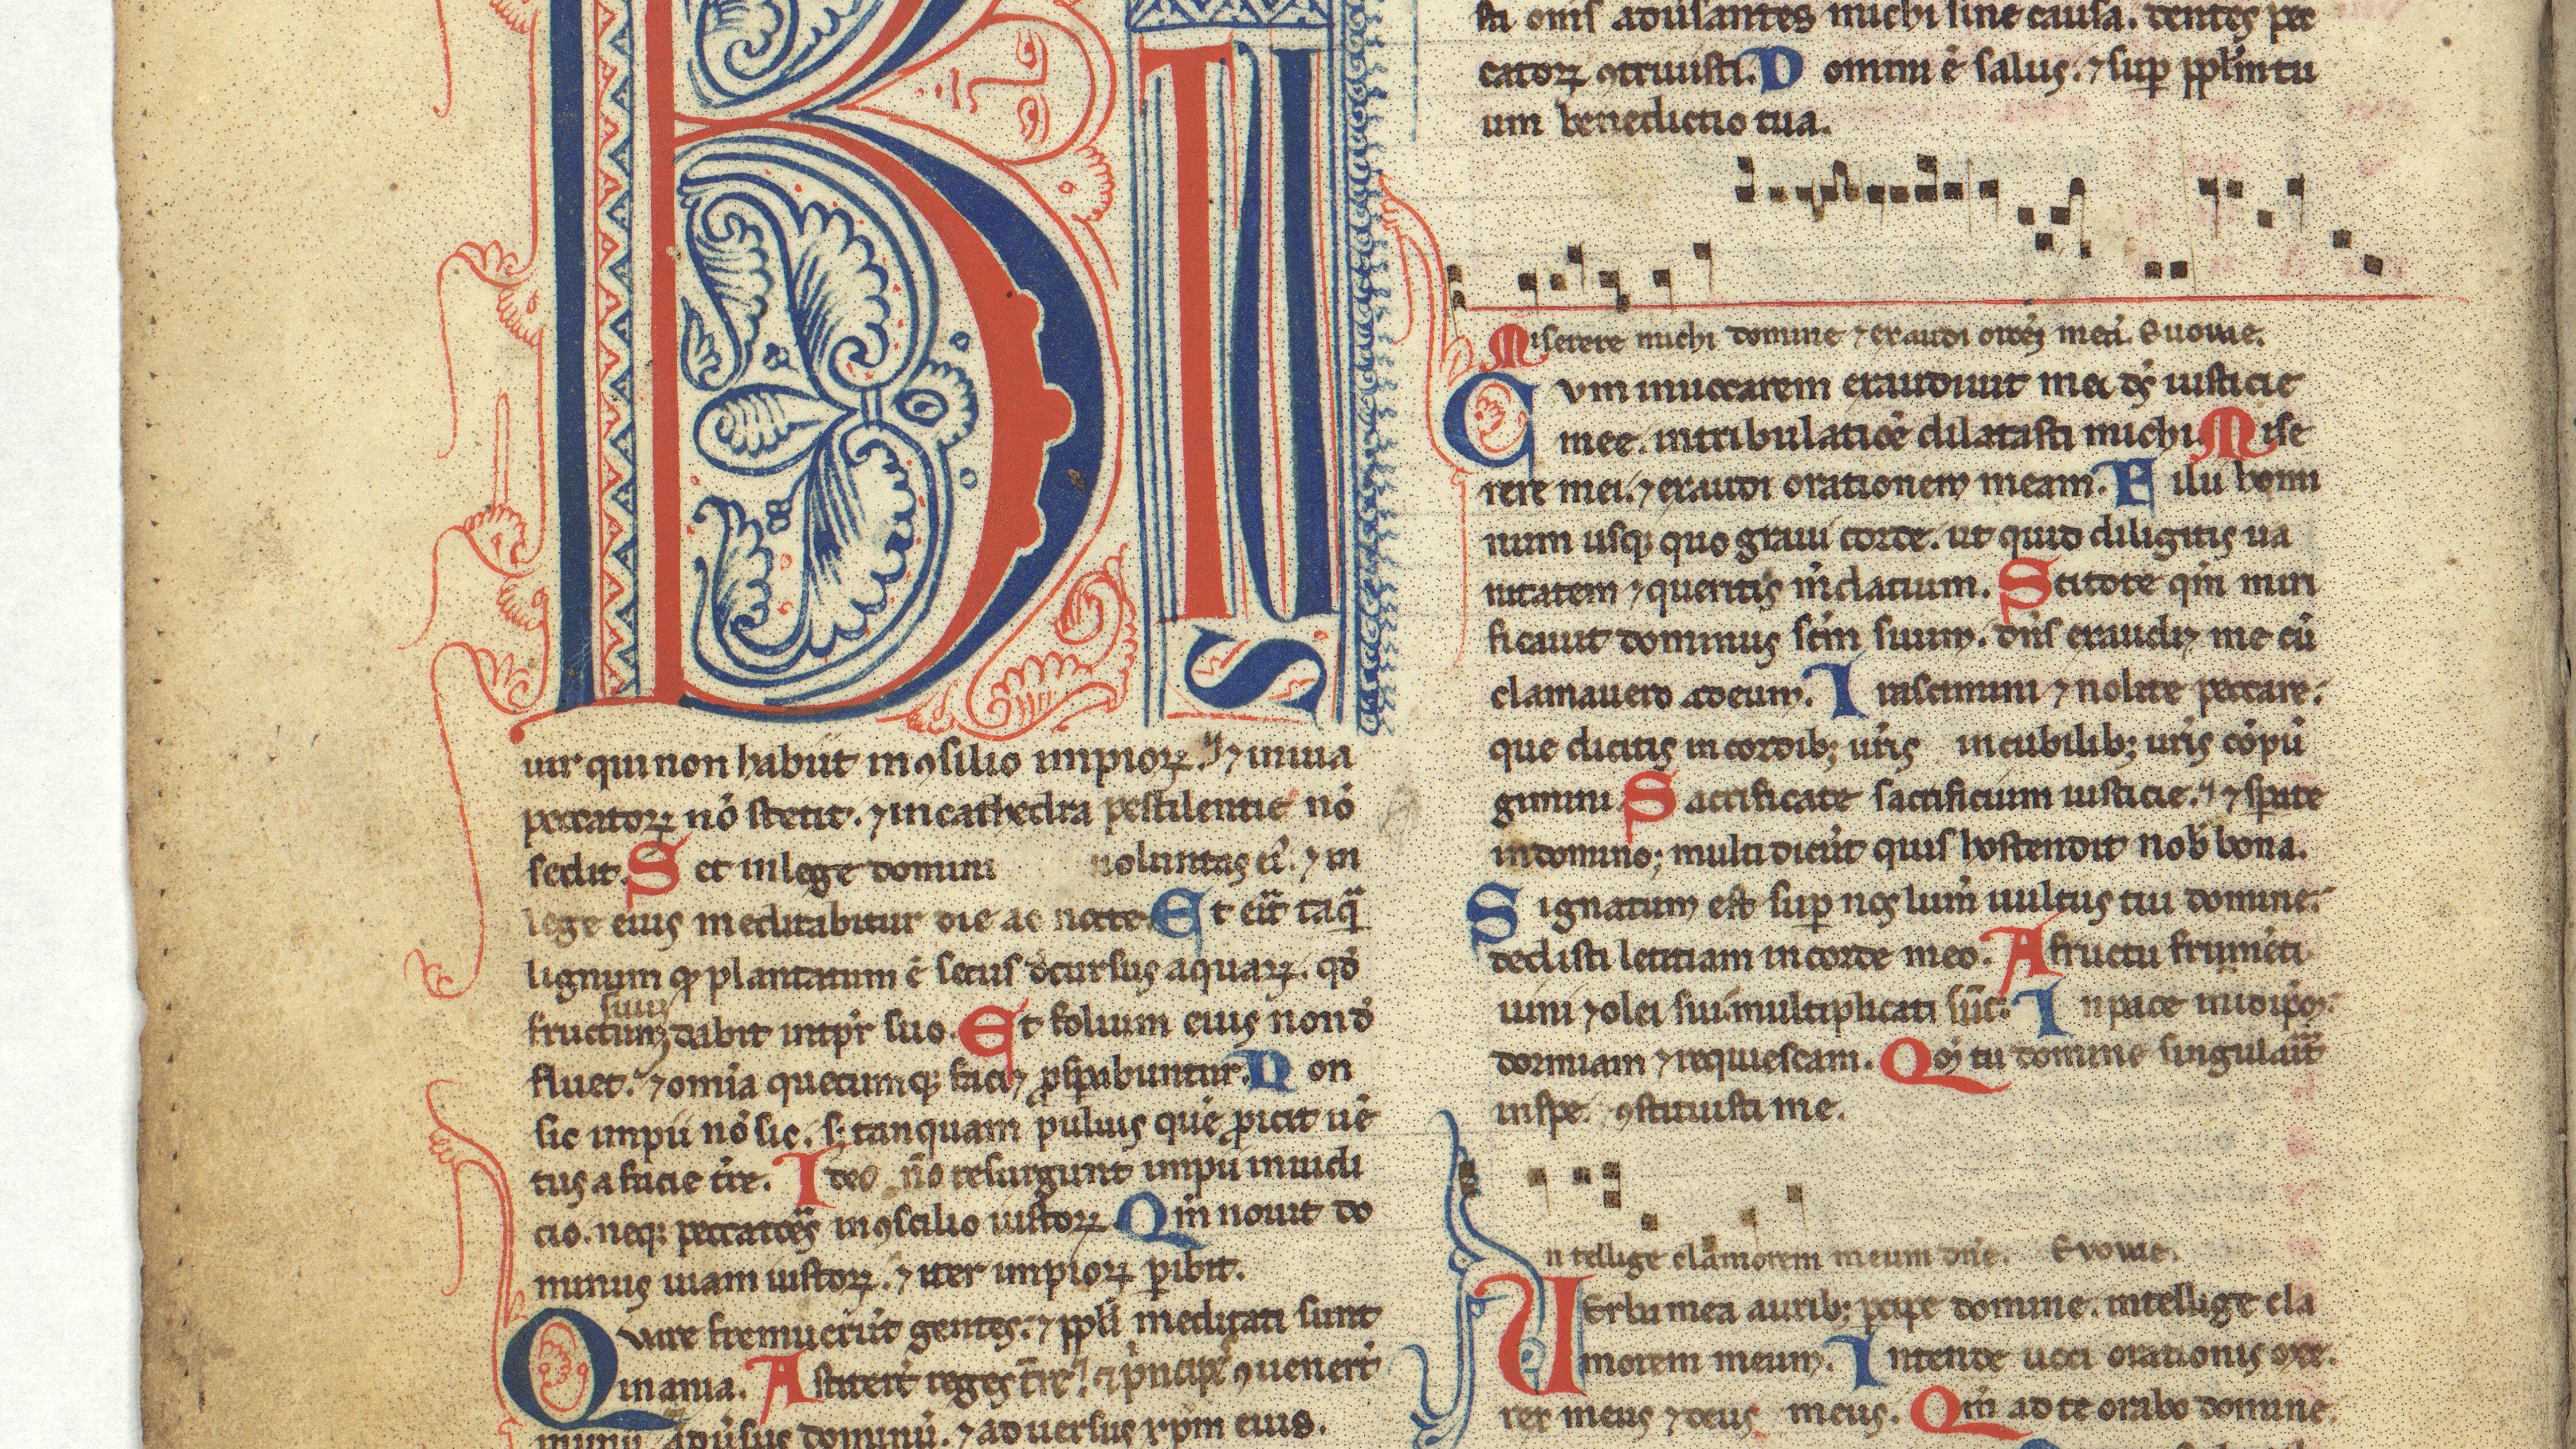 B
T U
S
uir qui non habiit in ꝯsilio impioꝝ. ⁊ in uia
peccatoꝝ nō stetit. ⁊ in cathedra pestilentie nō
sedit. Set in lege domini uoluntas ei᷒. ⁊ in
lege eius meditabitur die ac nocte. Et eͥt taq̄ꝫ
lignum qͩ plantatum ē secus dcursus aquaꝝ. qđ
suum
fructum dabit in tp̄r suo. Et folium eius non đ
fluet. ⁊ omīa quecumqꝫ faciꝫ ꝓsꝑabuntur. Non
sic impii nō sic. sꝫ tanquam puluis quē ꝓicit uē
tus a facie t̄re. Ideo nō resurgunt impii in iudi
cio. neqꝫ peccatoēs in ꝯscilio iustoꝝ. Qm̄ nouit do
minus uiam iustoꝝ. ⁊ iter impioꝝ ꝑibit.
Quare fremuerūt gentes. ⁊ ppl̄i meditati sunt
inania. Astiterūt reges t̄re. ⁊ p̄ncipes ꝯuenerūt
aduīsus dominū. ⁊ aduersus xp̄m eius.
sti om̄s aduīsantes michi sine causa. dentes pec
catoꝝ ꝯtriuisti. Domini ē salus. ⁊ suꝑ ppl̄m tu
um benedictio tua.
Miserere michi domine ⁊ exaudi oroēꝫ meā. Euouae.
Cum inuocarem exaudiuit me ds̄ iusticie
mee. in tribulatiōe dilatasti michi. Mise
rere mei. ⁊ exaudi orationem meam. Filii homi
num usqꝫ quo graui corde. ut quid diligitis ua
nitatem ⁊ queritis mdatium. Scitote qm̄ miri
ficauit dominus scm̄ suum. dn̄s exaudiꝫ me cū
clamauero ad eum. Irascimini ⁊ nolite peccare.
que dicitis in cordibꝫ ur̄is in cubilibꝫ ur̄is cōpū
gimini. Sacrificate sacrificium iusticie. ⁊ sꝑate
in domino; multi dicūt quis hostendit nob̄ bona.
Signatum est suꝑ nos lum̄ uultus tui domine.
dedisti letitiam in corde meo. A fructu frumēti
uini ⁊ olei sui multiplicati sūt. In pace in idip̄m.
dormiam ⁊ requiescam. Qm̄ tu domine singulaīt
in spe ꝯstituisti me.
ntellige clamorem meum dn̄e. Euouae.
Uerba mea auribꝫ ꝑcipe domine. intellige cla
morem meum. Intende uoci orationis mee.
rex meus ⁊ deus meus. Qm̄ ad te orabo domine